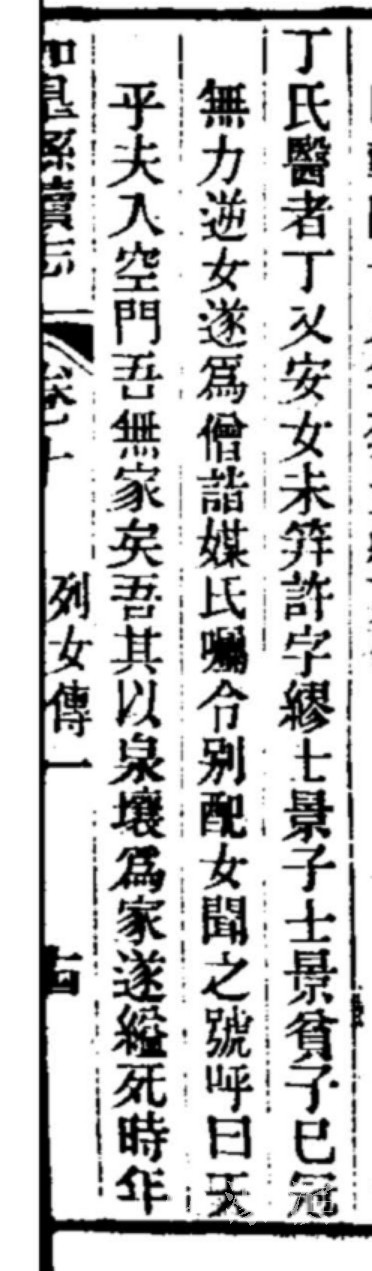 丁氏醫者丁乂安女未笄許字繆士景子士景貧子已冠
無力逆女遂爲僧詣媒氏囑令別配女聞之號呼曰天
乎夫入空門吾無家矣吾其以泉壤爲家遂縊死時年
列女傳一